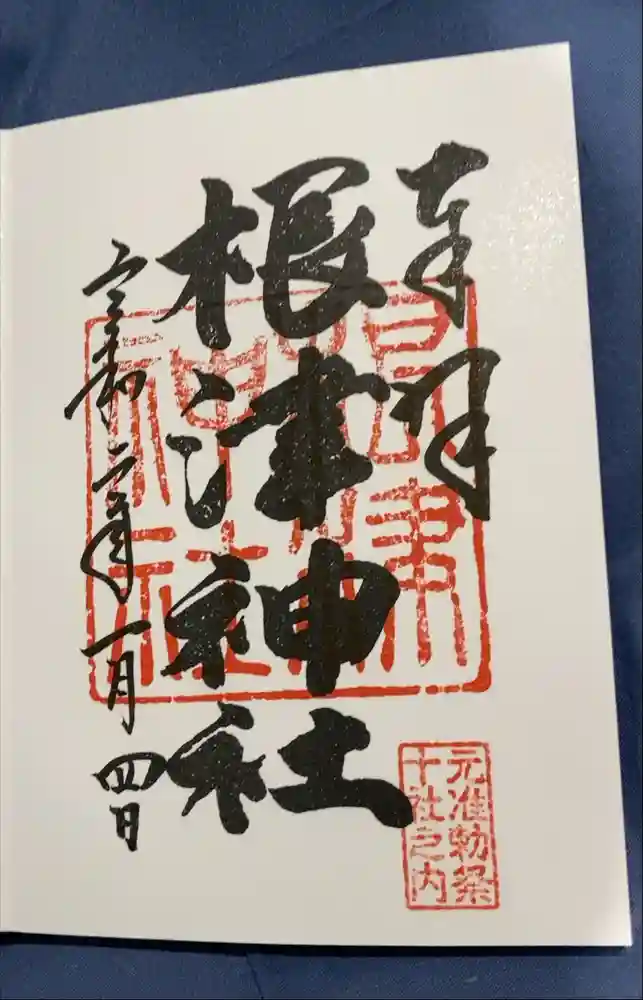 奉拝
根津神社
一月四日
根津
神社
元准勅祭
十社之内